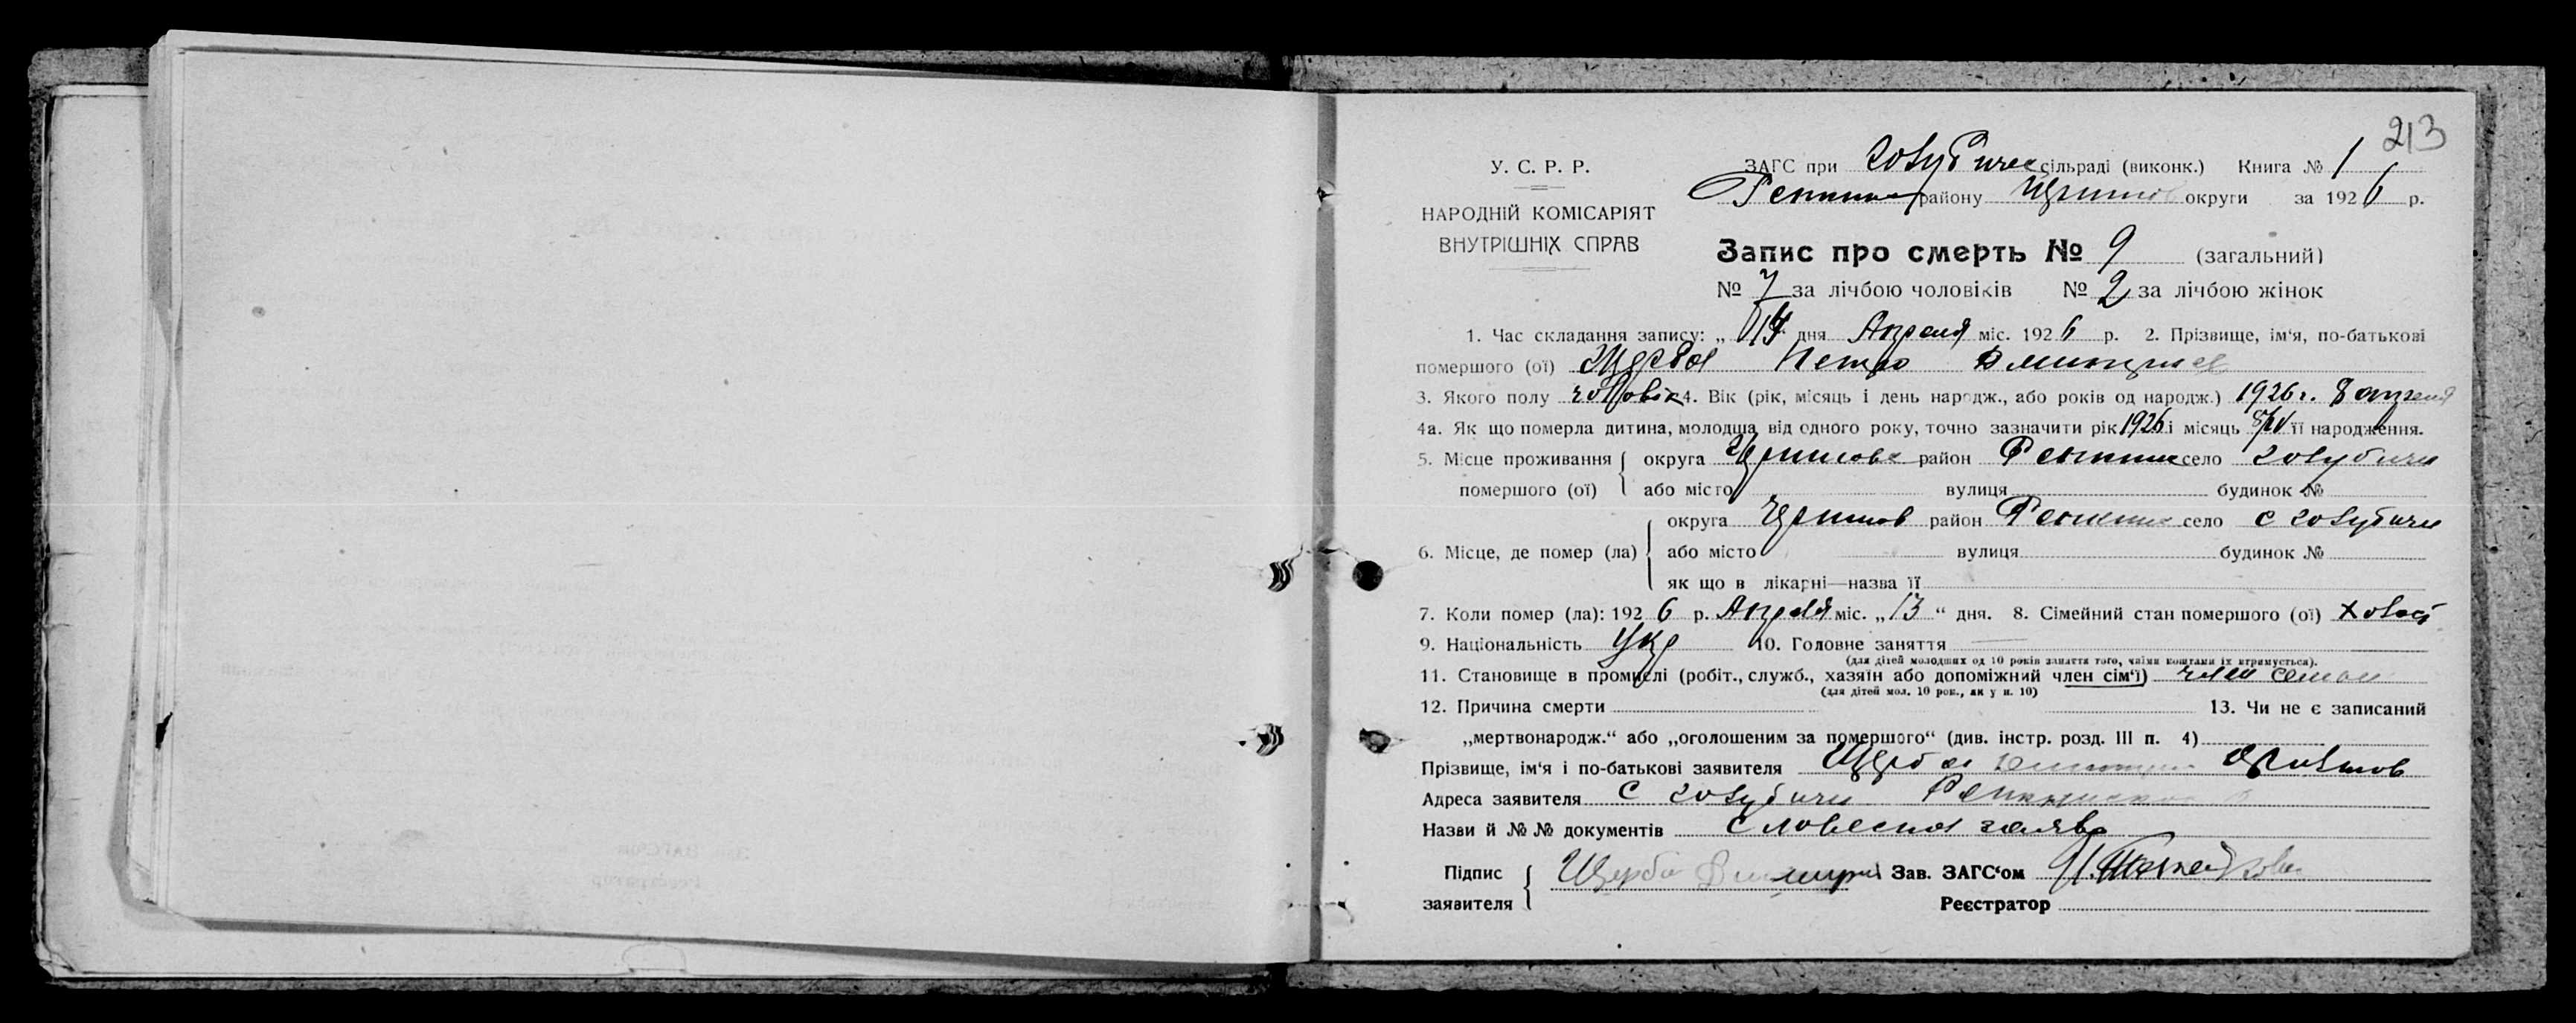 213
У. С. Р. Р.
НАРОДНІЙ КОМІСАРІЯТ
ВНУТРІШНІХ СПРАВ
ЗАГС при Голубичес сільраді (виконк.) Книга № 1
Репкин району округи за 1926 р.
Запис про смерть № 9 (загальний)
№ 7 за лічбою чоловіків № 2 за лічбою жінок
1. Час складання запису: „ 14 дня Апреля міс. 1926 р. 2. Прізвище, ім‘я, по-батькові
помершого (ої) Щерба Петро
3. Якого полу чоловік 4. Вік (рік, місяць і день народж., або років од народж.) 1926 г. 8 апреля
4а. Як що померла дитина, молодша від одного року, точно зазначити рік 1926 і місяць 8/IV її народження.
5. Місце проживання помершого (ої) округа район Репкин село Голубичи
або місто вулиця будинок №
6. Місце, де помер (ла) округа район Репкин село с Голубичи
або місто вулиця будинок №
як що в лікарні—назва її
7. Коли помер (ла): 1926 р. Апреля міс. „13“ дня. 8. Сімейний стан помершого (ої) холост
9. Національність Укр 10. Головне заняття
(для дітей молодших од 10 років заняття того, чиїми коштами їх втримується).
11. Становище в промислі (робіт., служб., хазяїн або допоміжний член сім‘ї) член семьи
(для дітей мол. 10 рок., як у п. 10)
12. Причина смерти 13. Чи не є записаний
„мертвонародж.“ або „оголошеним за помершого“ (див. інстр. розд. III п. 4)
Прізвище, ім‘я і по-батькові заявителя Щерба
Адреса заявителя с Голубичи
Назви й №№ документів словесная заява
Підпис заявителя Щерба Зав. ЗАГС‘ом
Реєстратор